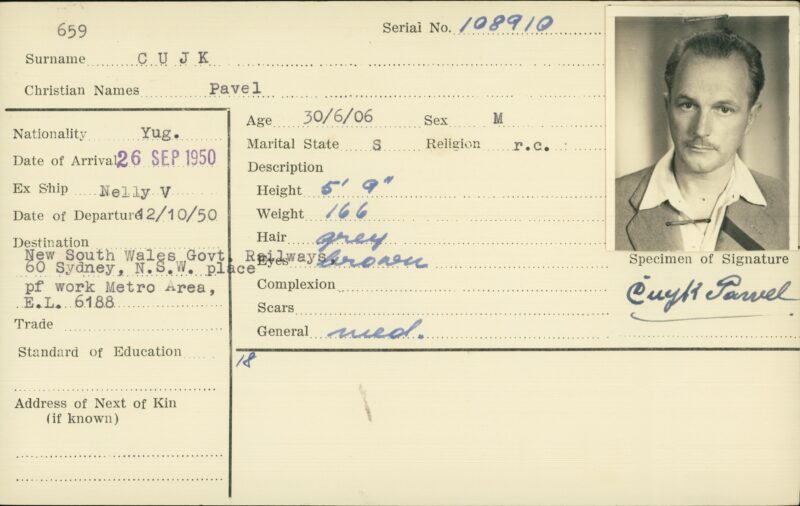 659
Serial No. 108910
Surname CUJK
Christian Names Pavel
Nationality Yug.
Date of Arrival 26 SEP 1950
Ex Ship Nelly V
Date of Departure 12/10/50
Destination
New South Wales Govt. Railways,
60 Sydney, N.S.W. place
pf work Metro Area,
E.L. 6188
Trade
Standard of Education
Address of Next of Kin
(if known)
Age 30/6/06 Sex M
Marital State S Religion r.c.
Description
Height 5' 9"
Weight 166
Hair grey
Eyes brown
Complexion
Scars
General med.
18
Specimen of Signature
Čujk Pavel